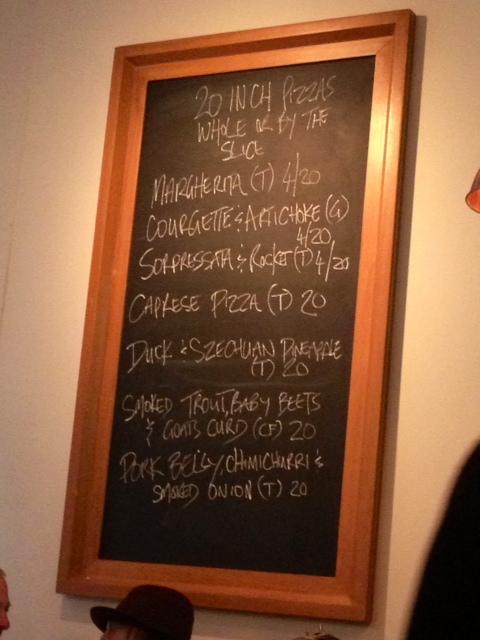 20 INCH PIZZAS
WHOLE OR BY THE
SLICE
MARGHERITA (T) 4/20
COURGETTE & ARTICHOKE (G)
4/20
SOPRESSATA & ROCKET (T) 4/20
CAPRESE PIZZA (T) 20
DUCK & SZECHUAN PINEAPPLE
(T) 20
SMOKED TROUT, BABY BEETS
& GOATS CURD (CF) 20
PORK BELLY, CHIMICHURRI &
SMOKED ONION (T) 20